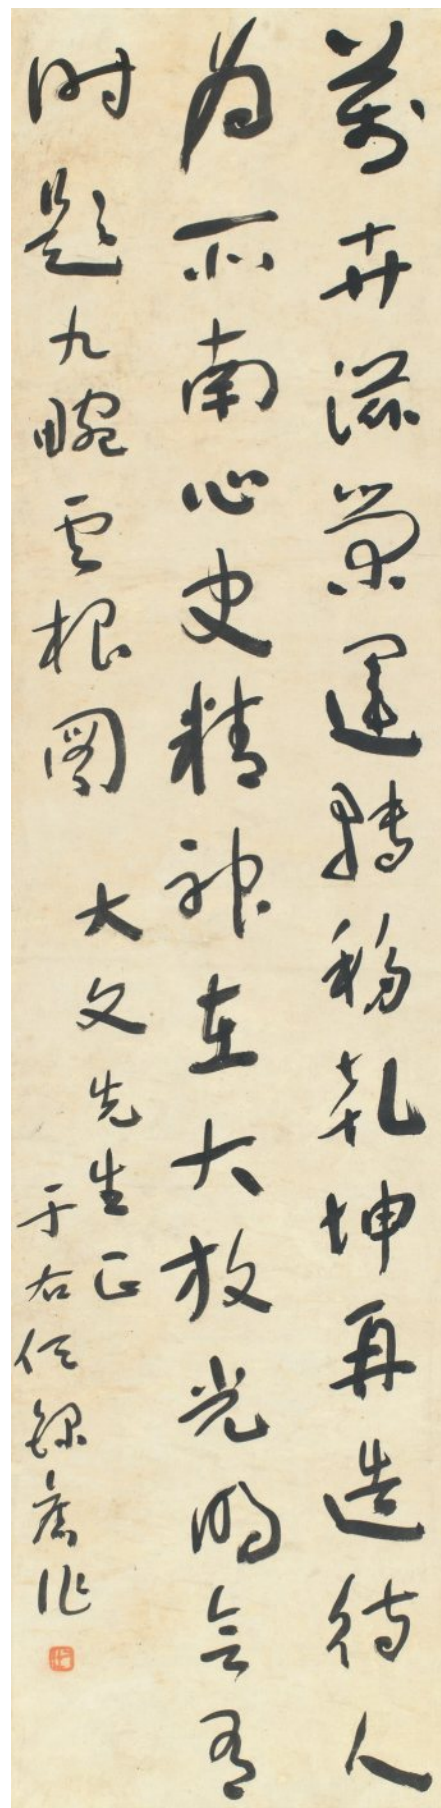 萬卉滋榮運轉移乾坤再造待人
為所南心史精神在大放光明會有
時題九畹雲根圖 大文先生正
于右任錄舊作